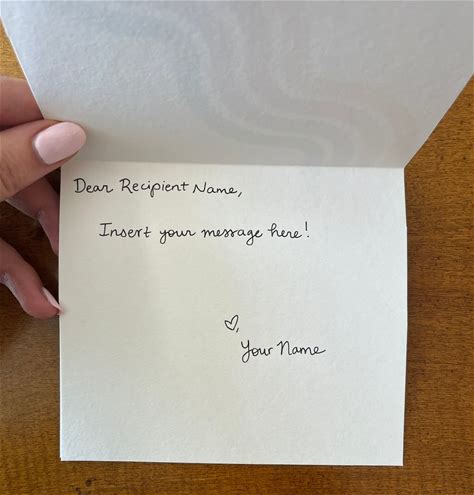 Dear Recipient Name,
Insert your message here!
♡,
Your Name